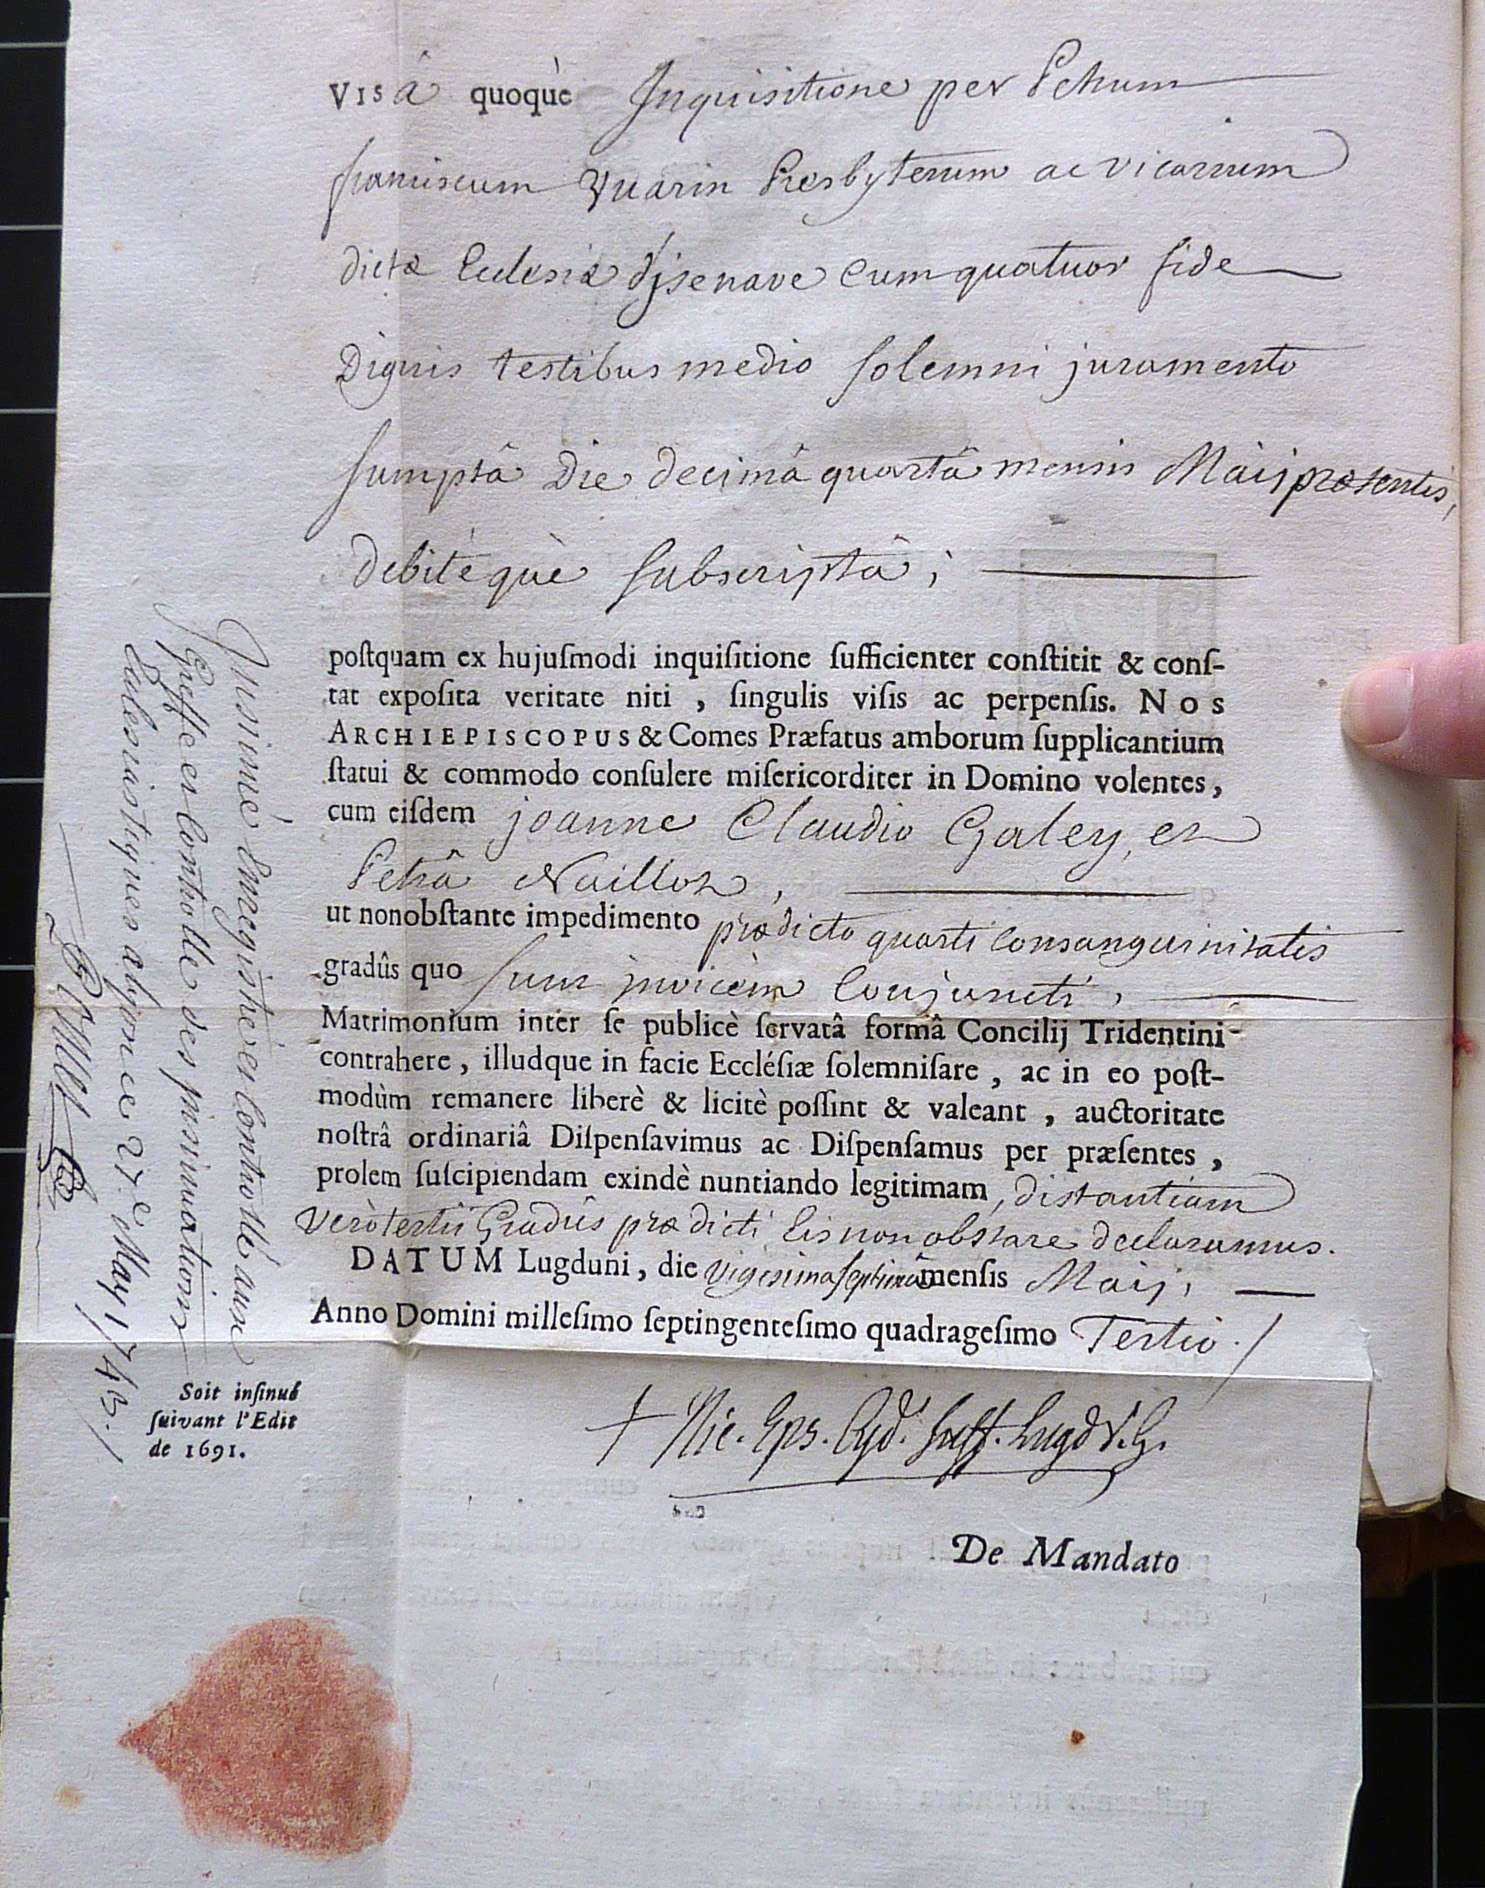 VISâ quoquè Inquisitione per Petrum
franciscum Vuarin Presbyterum ac vicarium
dictæ Eclesiæ Disenave Cum quatuor fide
Dignis testibus medio solemni juramento
sumptâ Die decimâ quartâ mensis Maij præsentis,
debitèquè subscriptâ ;
poſtquam ex hujuſmodi inquiſitione ſufficienter conſtitit & conſ-
tat expoſita veritate niti , ſingulis viſis ac perpenſis. NOS
ARCHIEPISCOPUS & Comes Præfatus amborum ſupplicantium
ſtatui & commodo conſulere miſericorditer in Domino volentes,
cum eiſdem joanne Claudio Galey, et
Petrâ Naillot,
ut nonobſtante impedimento prædicto quarti Consanguinitatis
gradûs quo sunt invicèm Conjuncti,
Matrimonium inter ſe publicè ſervatâ formâ Concilij Tridentini
contrahere , illudque in facie Eccléſiæ ſolemniſare , ac in eo poſt-
modùm remanere liberè & licitè poſſint & valeant , auctoritate
noſtrâ ordinariâ Diſpenſavimus ac Diſpenſamus per præſentes ,
prolem ſuſcipiendam exindè nuntiando legitimam, distantiam
Verò tertii Gradûs prædicti Eis non obstare declaramus.
DATUM Lugduni, die vigesima septimâ menſis Maij,
Anno Domini milleſimo ſeptingenteſimo quadrageſimo Tertio ./
✝ Nic. Eps. Cyd. Suff. Lugd V. G.
De Mandato
Soit inſinué
ſuivant l'Edit
de 1691.
Insinué Enregistré et Controllé aux
Greffe et Controlle des insinuations
Eclesiastiques a lyon ce 27e May 1743 ./